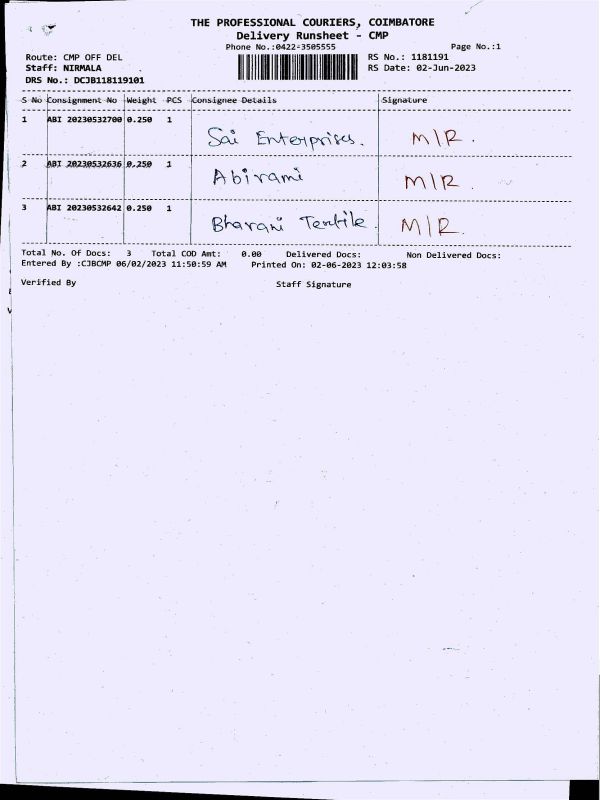 THE PROFESSIONAL COURIERS, COIMBATORE
Delivery Runsheet - CMP
Phone No.:0422-3505555 Page No.:1
Route: CMP OFF DEL RS No.: 1181191
Staff: NIRMALA RS Date: 02-Jun-2023
DRS No.: DCJB118119101
S No Consignment No Weight PCS Consignee Details Signature
1 ABI 20230532700 0.250 1
Sai Enterprises. M/R.
2 ABI 20230532636 0.250 1
Abirami M/R.
3 ABI 20230532642 0.250 1
Bharani Textile. M/R.
Total No. Of Docs: 3 Total COD Amt: 0.00 Delivered Docs: Non Delivered Docs:
Entered By :CJBCMP 06/02/2023 11:50:59 AM Printed On: 02-06-2023 12:03:58
Verified By Staff Signature